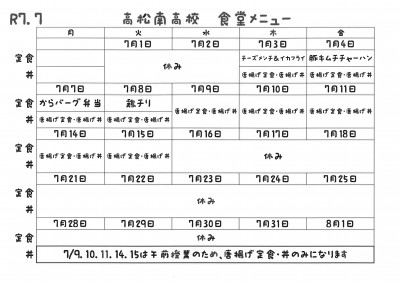 R7.7 高松南高校 食堂メニュー
月 火 水 木 金
7月1日 7月2日 7月3日 7月4日
定食 休み チーズメンチ&イカフライ 豚キムチチャーハン
丼 唐揚げ定食・唐揚げ丼 唐揚げ定食・唐揚げ丼
7月7日 7月8日 7月9日 7月10日 7月11日
定食 からバーグ弁当 鶏チリ 唐揚げ定食・唐揚げ丼 唐揚げ定食・唐揚げ丼 唐揚げ定食・唐揚げ丼
丼 唐揚げ定食・唐揚げ丼 唐揚げ定食・唐揚げ丼
7月14日 7月15日 7月16日 7月17日 7月18日
定食 唐揚げ定食・唐揚げ丼 唐揚げ定食・唐揚げ丼 休み
丼
7月21日 7月22日 7月23日 7月24日 7月25日
定食 休み
丼
7月28日 7月29日 7月30日 7月31日 8月1日
定食 休み
丼 7/9.10.11.14.15は午前授業のため、唐揚げ定食・丼のみになります